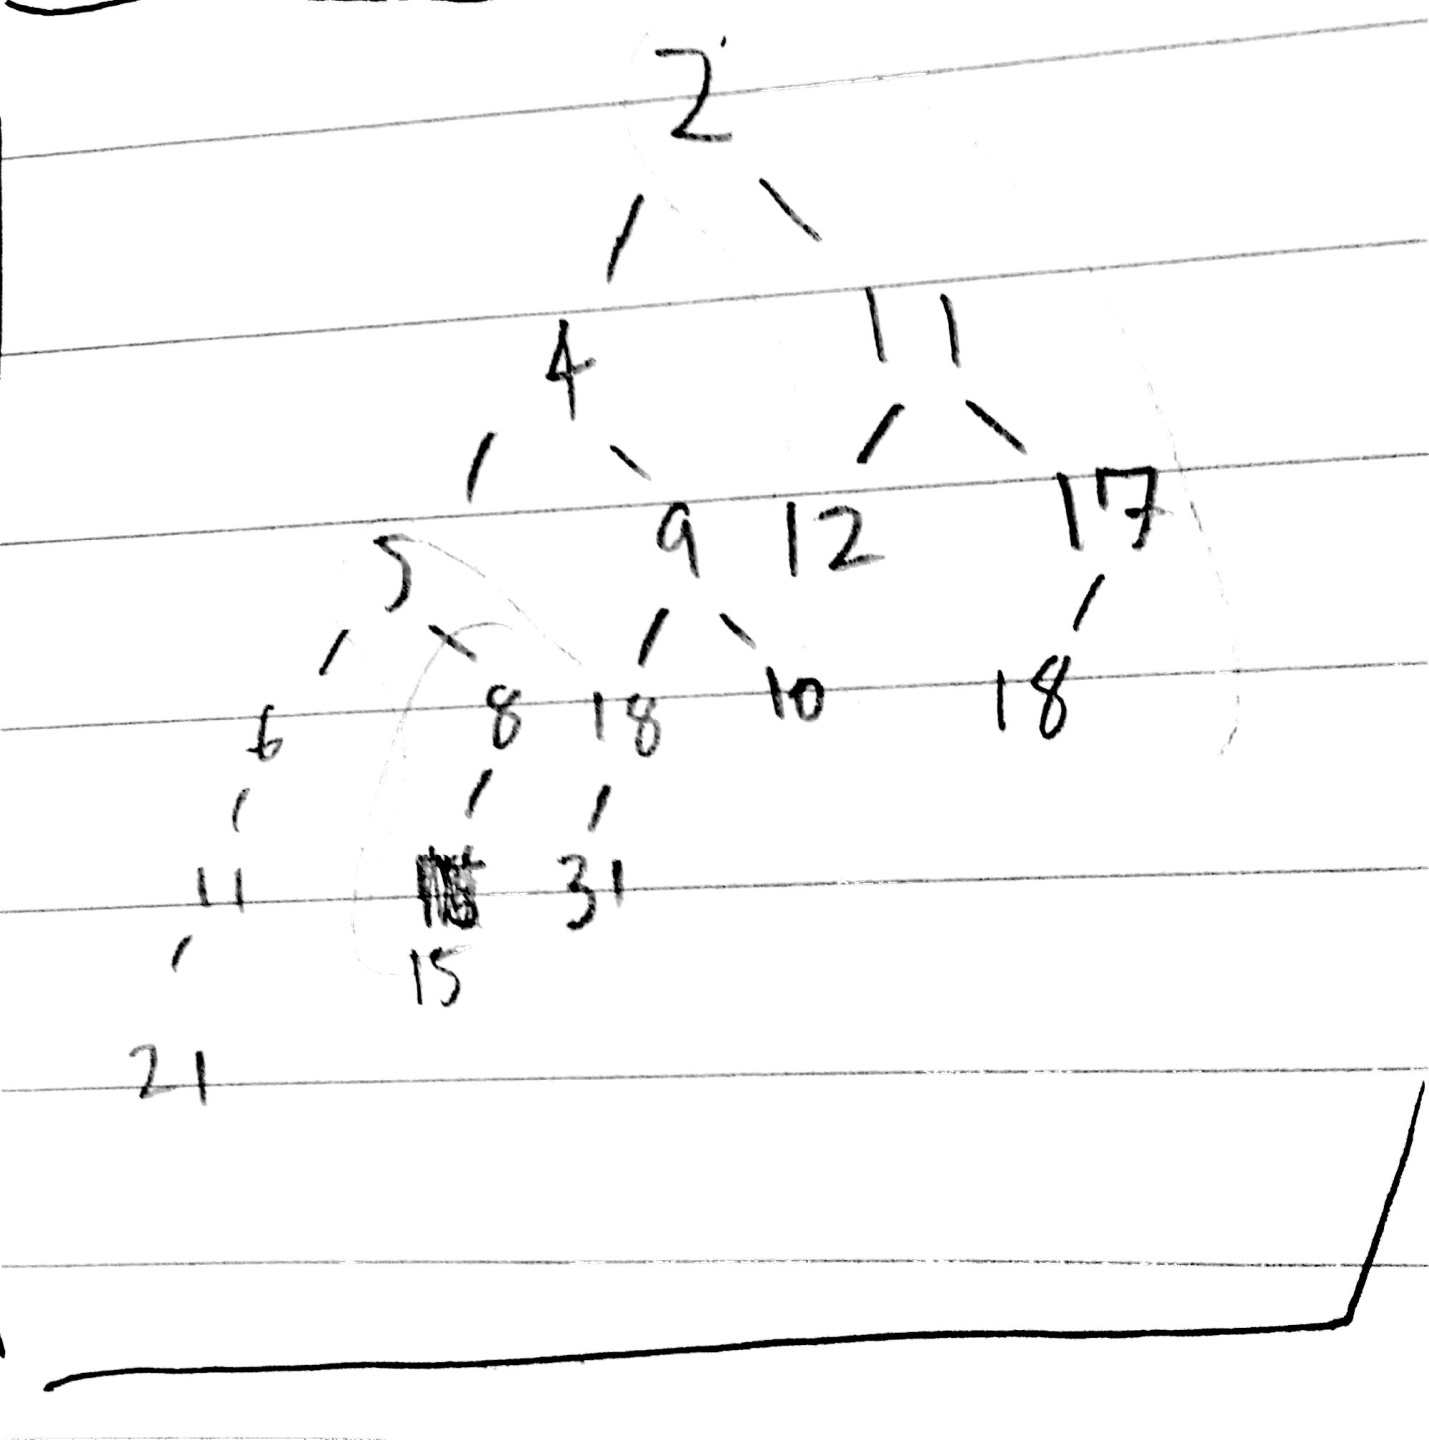 2
4 11
5 9 12 17
6 8 18 10 18
11 31
15
21